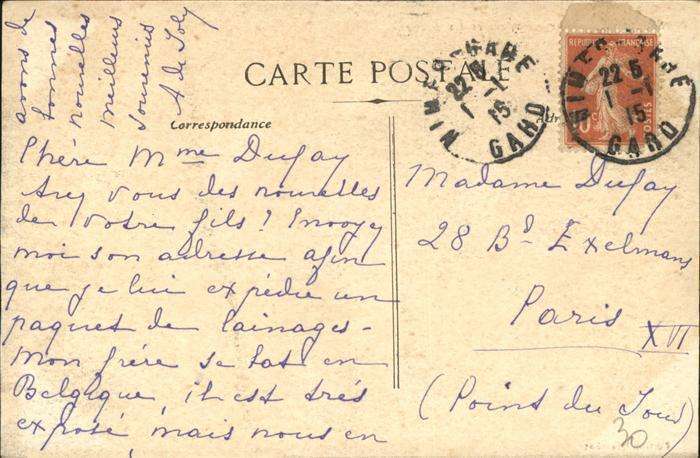 CARTE POSTALE
Correspondance
Chère Mme Dufay
Avez vous des nouvelles
de votre fils ? Envoyez
moi son adresse afin
que je lui expédie un
paquet de lainages -
Mon frère se bat en
Belgique, il est très
exposé, mais nous en
avons de
bonnes
nouvelles
meilleurs
souvenirs
A de Joly
Madame Dufay
28 Bd Exelmans
Paris
XVI
(Point du Jour)
30
NIMES GARE
22 5
1 - 1
15
GARD
REPUBLIQUE FRANÇAISE
POSTES
NIMES GARE
22 5
1 - 1
15
GARD